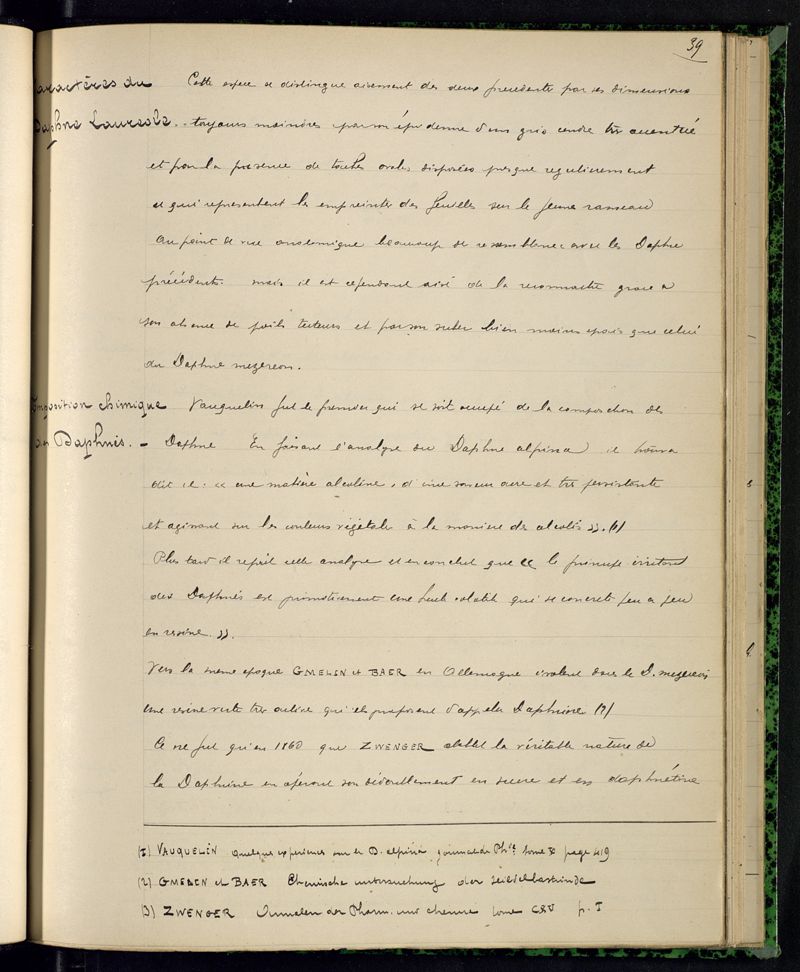 39
Caractères du
Daphne Laureole. -
Cette espece se distingue aisement des deux precedentes par ses dimensions
toujours moindres par son épiderme d'un gris cendre très accentué
et par la presence de taches ovales disposées presque regulierement
et qui representent les empreintes des feuilles sur le jeune rameau
Au point de vue anatomique beaucoup de ressemblance avec les Daphne
précédents. mais il est cependant aisé de la reconnaitre grace a
son absence de poils tecteurs et par son suber bien moins epais que celui
du Daphne mezereon.
Composition chimique
des Daphnés. -
Vauquelin fut le premier qui se soit occupé de la composition des
Daphne En faisant l'analyse du Daphne alpina il trouva
dit il: « une matière alcaline, d'une saveur acre et très persistante
et agissant sur les couleurs végétales à la maniere des alcalis ». (1)
Plus tard il reprit cette analyse et en conclut que « le principe irritant
des Daphnés est primitivement une huile volatile qui se concrete peu a peu
en resine. ».
Vers la meme epoque GMELIN et BAER en Allemagne isolent dans le D. mezereon
une resine verte très active qu'ils proposent d'appeler Daphnine (2)
Ce ne fut qu'en 1860 que ZWENGER etablit la véritable nature de
la Daphnine en opérant son dédoublement en sucre et en daphnétine
(1) VAUQUELIN Quelques experiences sur le D. alpina journal de Phie tome X page 419
(2) GMELIN et BAER Chemische untersuchung der seidelbastrinde
(3) ZWENGER Annalen der Pharm. und chemie tome CXV p. I